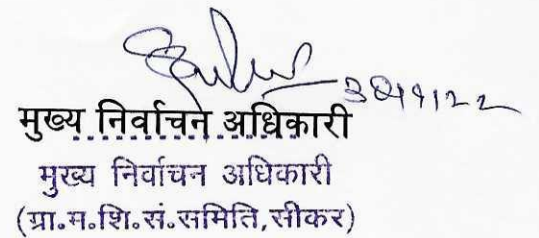 मुख्य निर्वाचन अधिकारी
मुख्य निर्वाचन अधिकारी
(ग्रा.म.शि.सं.समिति,सीकर)